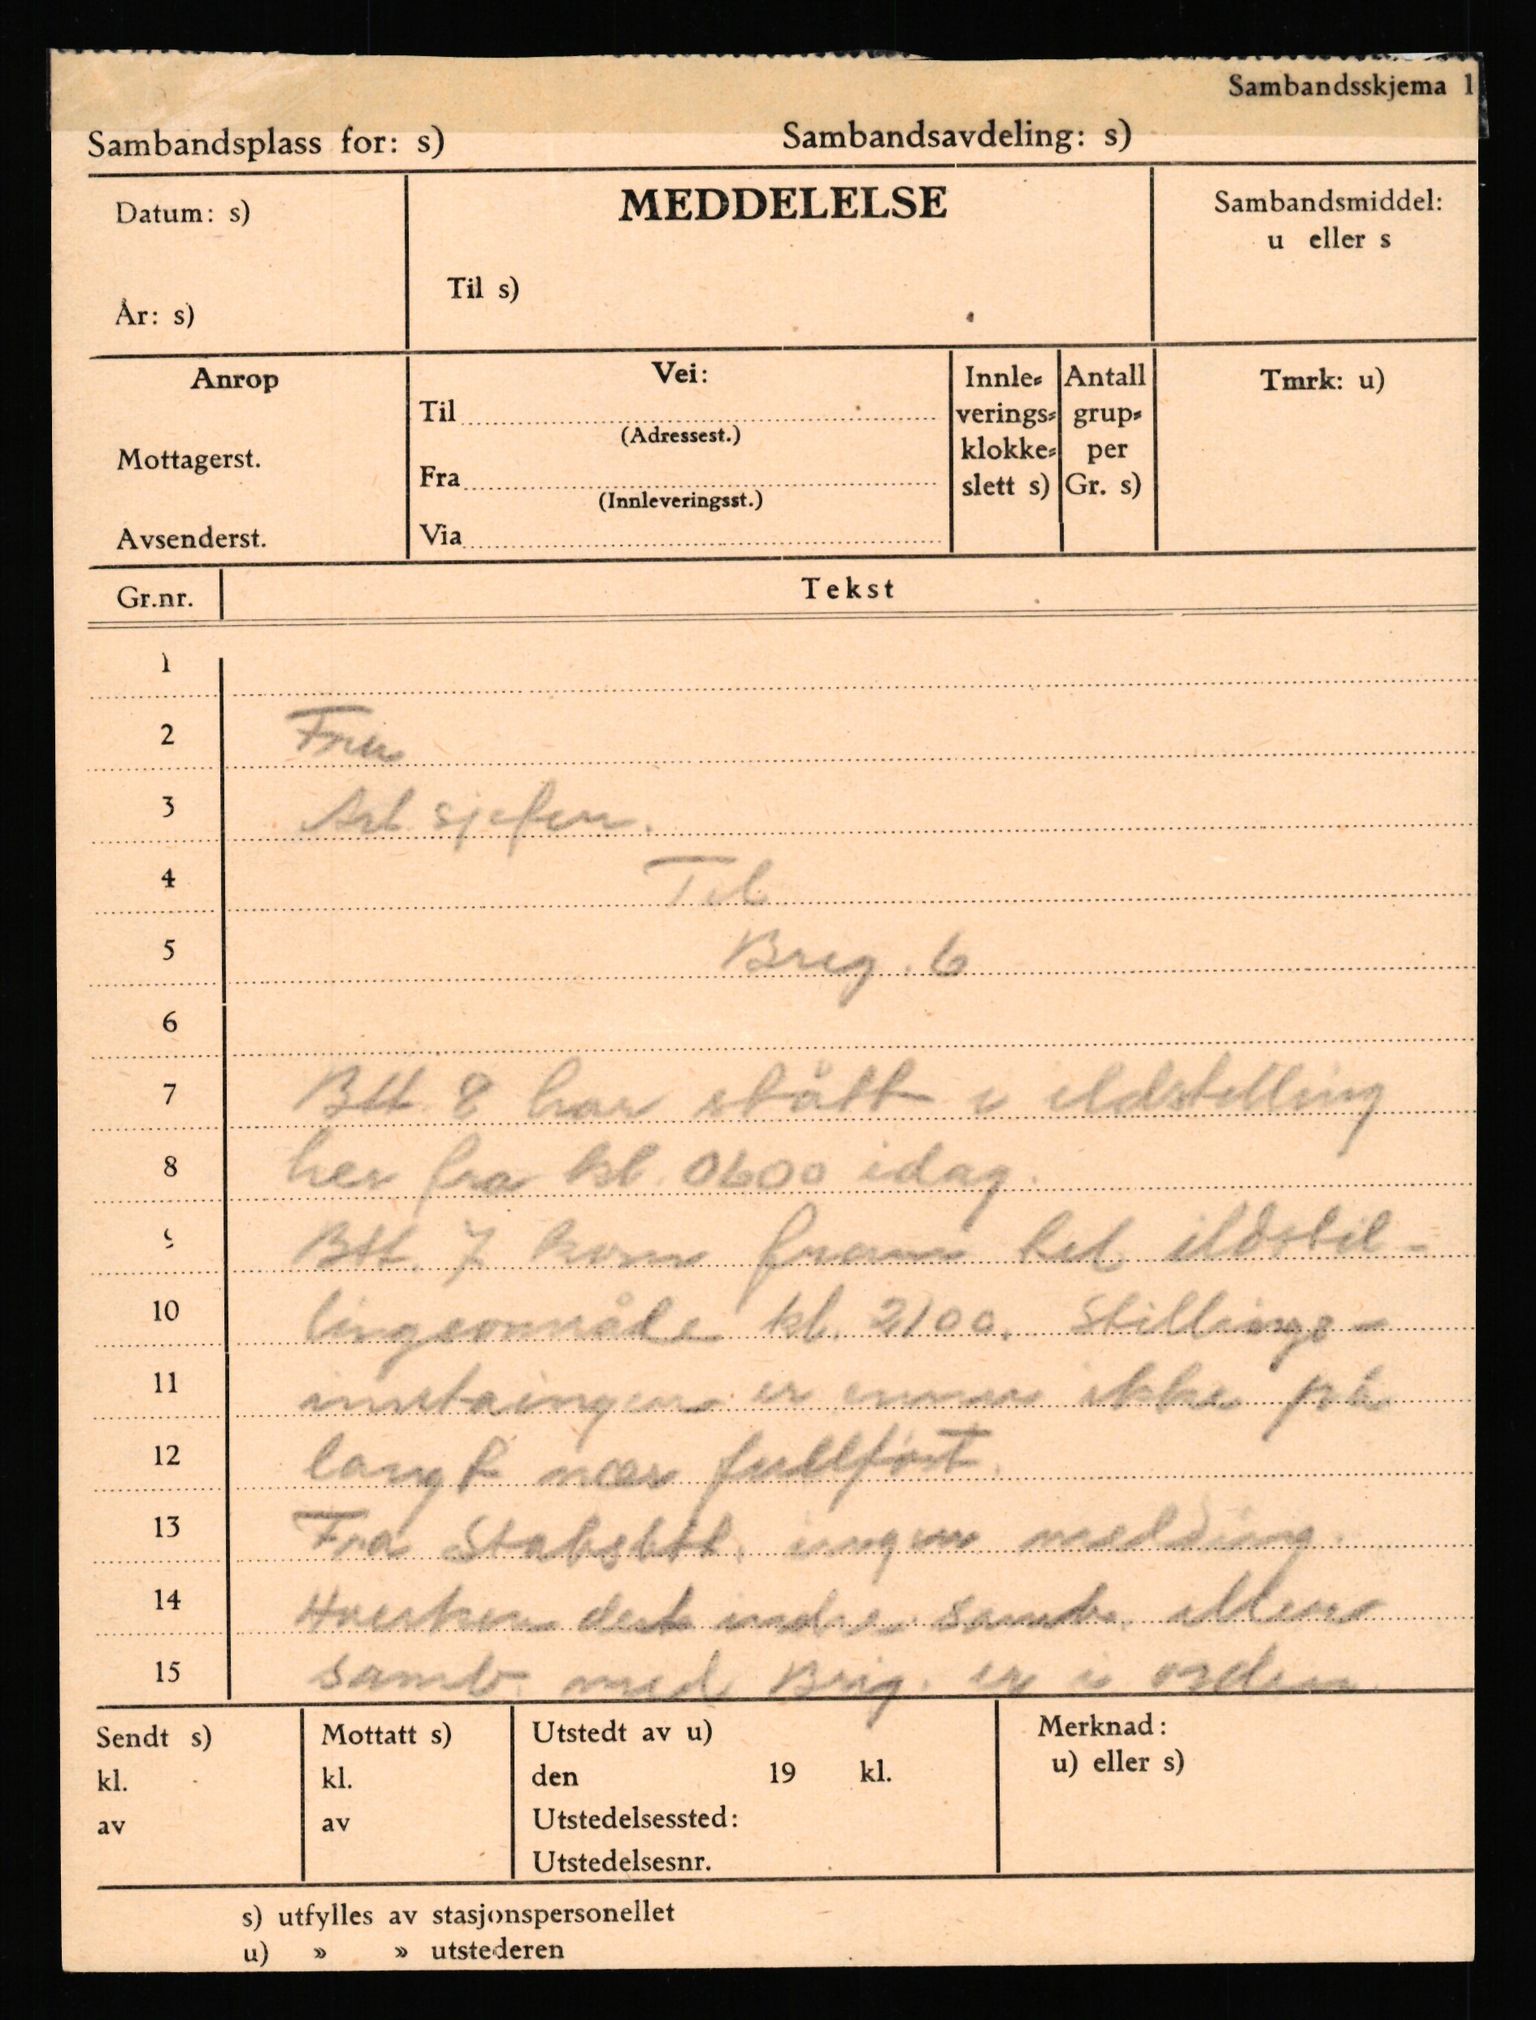 Sambandsskjema 1
Sambandsplass for: s) Sambandsavdeling: s)
Datum: s) MEDDELELSE Sambandsmiddel:
u eller s
Til s)
År: s)
Anrop Vei: Innle= Antall Tmrk: u)
Til verings= grup=
(Adressest.)
Mottagerst. klokke= per
Fra slett s) Gr. s)
(Innleveringsst.)
Avsenderst. Via
Gr.nr. Tekst
1
2 Fra
3 Art. sjefen.
4 Til
5 Brig. 6
6
7 Btt. 8 har stått i ildstilling
8 her fra kl. 0600 idag.
9 Btt. 7 kom fram til ildstil-
10 lingsområde kl. 2100. Stillings-
11 inntaingen er ennu ikke på
12 langt nær fullført.
13 Fra Stabsbtt. ingen melding.
14 Hverken det indre samb. eller
15 samb. med Brig. er i orden.
Sendt s) Mottatt s) Utstedt av u) Merknad:
kl. kl. den 19 kl. u) eller s)
av av Utstedelsessted:
Utstedelsesnr.
s) utfylles av stasjonspersonellet
u) » » utstederen